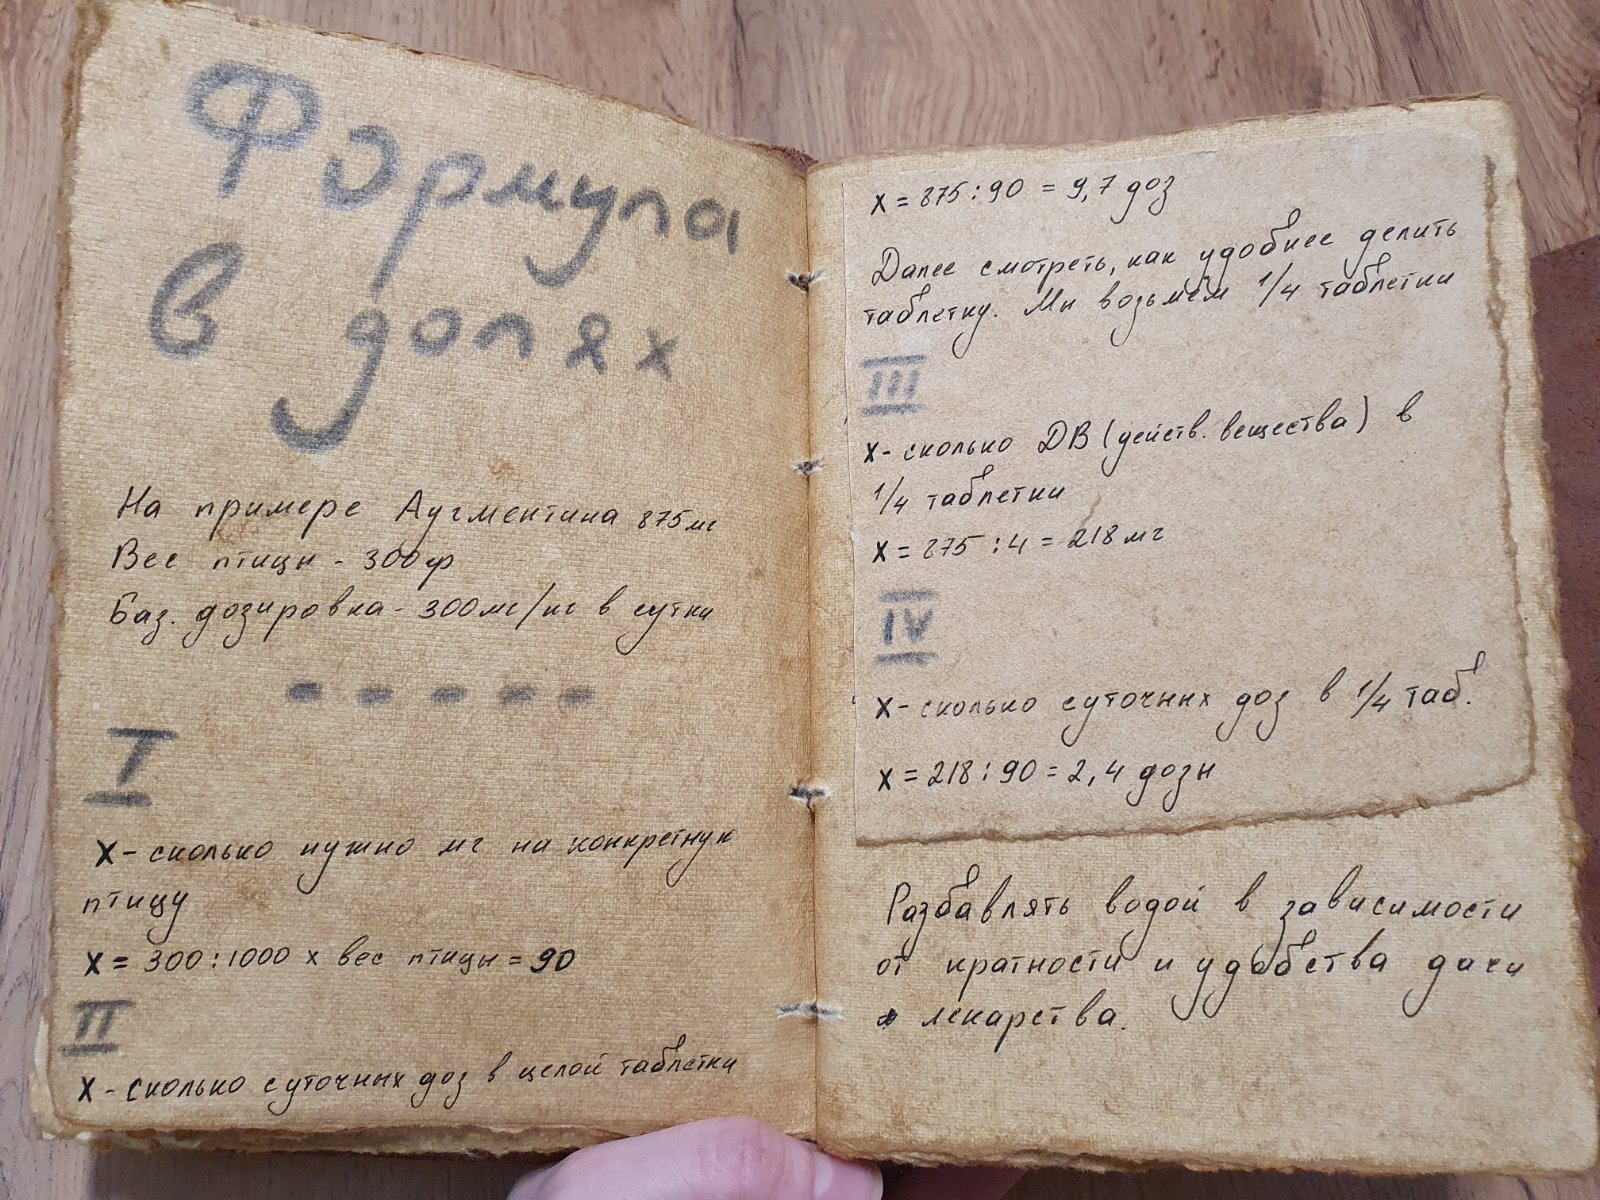 Формула
в долях
На примере Аугментина 875мг
Вес птицы - 300гр
Баз. дозировка - 300мг/кг в сутки
I
X - сколько нужно мг на конкретную
птицу
X = 300:1000 х вес птицы = 90
II
X - сколько суточных доз в целой таблетки
X = 875:90 = 9,7 доз
Далее смотреть, как удобнее делить
таблетку. Мы возьмём 1/4 таблетки
III
X - сколько ДВ (действ. вещества) в
1/4 таблетки
X = 875:4 = 218мг
IV
X - сколько суточных доз в 1/4 таб.
X = 218:90 = 2,4 дозы
Разбавлять водой в зависимости
от кратности и удобства дачи
лекарства.